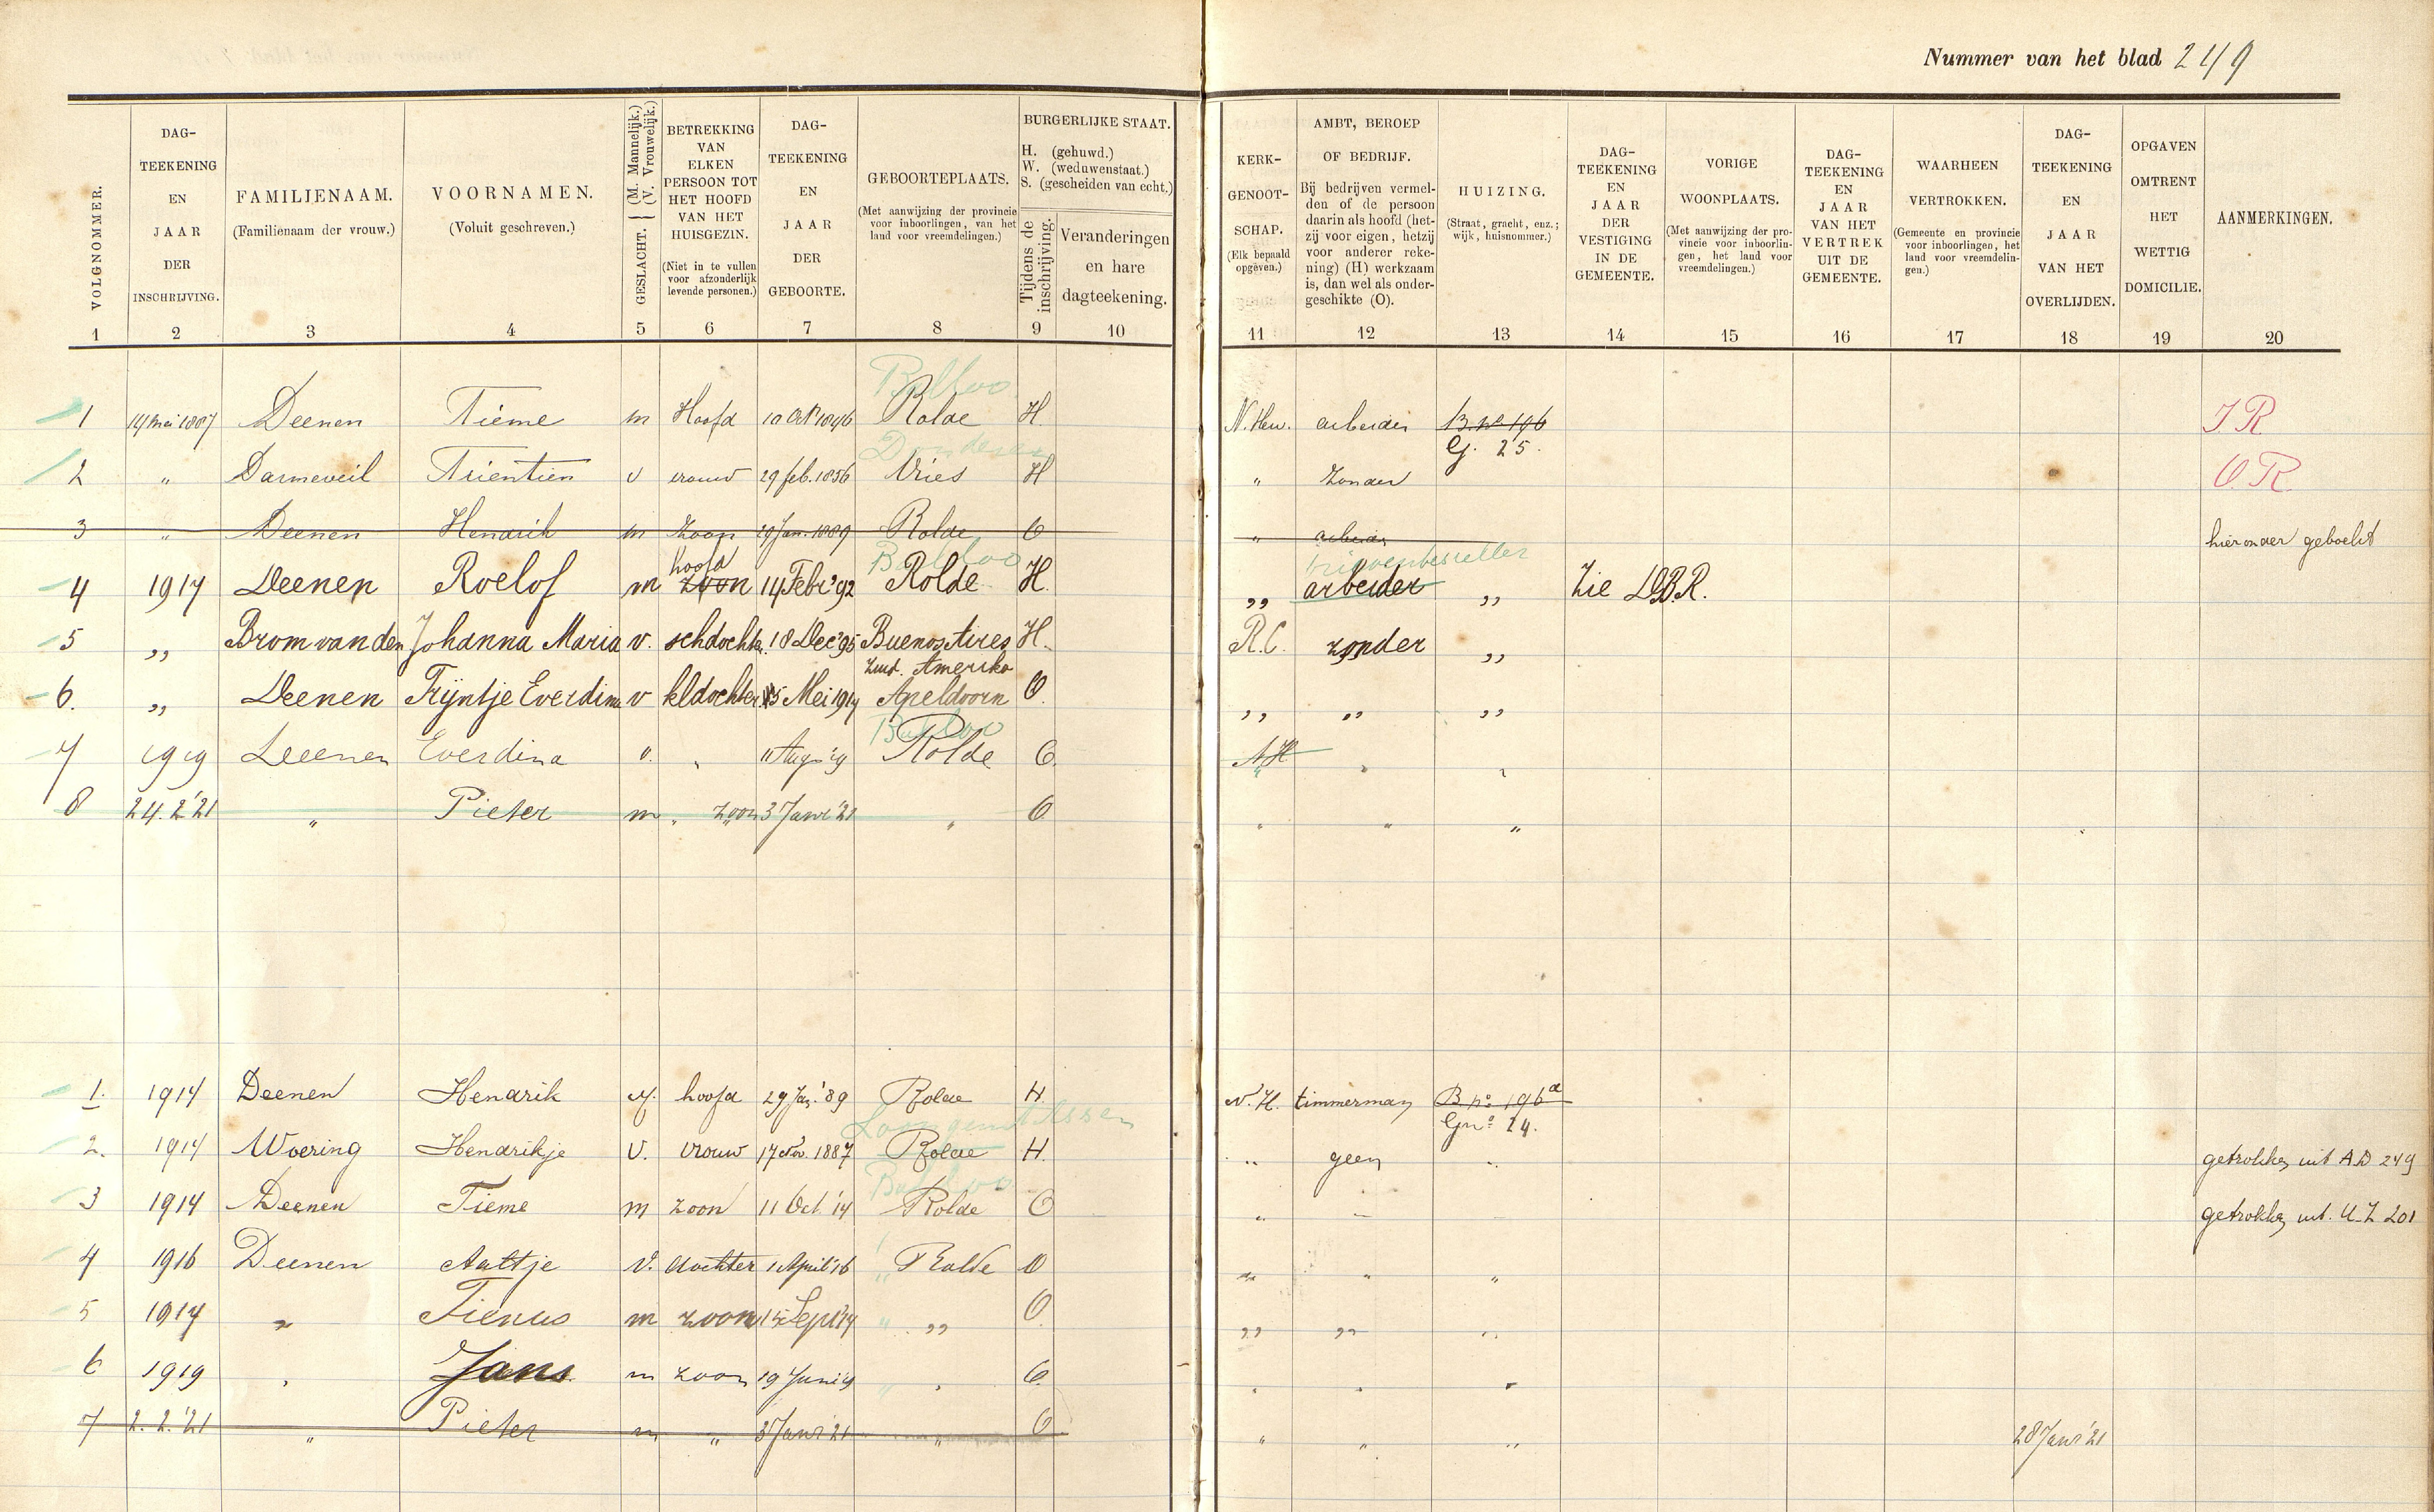 Nummer van het blad 249
VOLGNOMMER.
DAG-TEEKENING EN JAAR DER INSCHRIJVING.
FAMILIENAAM. (Familienaam der vrouw.)
VOORNAMEN. (Voluit geschreven.)
GESLACHT. (M. Mannelijk.) (V. Vrouwelijk.)
BETREKKING VAN ELKEN PERSOON TOT HET HOOFD VAN HET HUISGEZIN. (Niet in te vullen voor afzonderlijk levende personen.)
DAG-TEEKENING EN JAAR DER GEBOORTE.
GEBOORTEPLAATS. (Met aanwijzing der provincie voor inboorlingen, van het land voor vreemdelingen.)
BURGERLIJKE STAAT. H. (gehuwd.) W. (weduwenstaat.) S. (gescheiden van echt.)
Tijdens de inschrijving.
Veranderingen en hare dagteekening.
KERK-GENOOT-SCHAP. (Elk bepaald opgeven.)
AMBT, BEROEP OF BEDRIJF. Bij bedrijven vermelden of de persoon daarin als hoofd (hetzij voor eigen, hetzij voor anderer rekening) (H) werkzaam is, dan wel als ondergeschikte (O).
HUIZING. (Straat, gracht, enz.; wijk, huisnommer.)
DAG-TEEKENING EN JAAR DER VESTIGING IN DE GEMEENTE.
VORIGE WOONPLAATS. (Met aanwijzing der provincie voor inboorlingen, het land voor vreemdelingen.)
DAG-TEEKENING EN JAAR VAN HET VERTREK UIT DE GEMEENTE.
WAARHEEN VERTROKKEN. (Gemeente en provincie voor inboorlingen, het land voor vreemdelingen.)
DAG-TEEKENING EN JAAR VAN HET OVERLIJDEN.
OPGAVEN OMTRENT HET WETTIG DOMICILIE.
AANMERKINGEN.
1 2 3 4 5 6 7 8 9 10 11 12 13 14 15 16 17 18 19 20
Balloo
1 14 mei 1887 Deenen Tieme m Hoofd 10 Oct 1846 Rolde H. N. Herv. arbeider B. no 196 I R
Donderen G. 25.
2 " Darmeveil Trientien v vrouw 29 feb. 1856 Vries H " Zonder O. R
3 " Deenen Hendrik m Zoon 29 Jan. 1889 Rolde O " arbeider hieronder geboekt
hoofd Balloo brievenbesteller
4 1917 Deenen Roelof m zoon 14 Febr '92 Rolde H. ,, arbeider ,, Zie D.B.R.
5 ,, Brom van den Johanna Maria v. schdochter. 18 Dec '95 Buenos Aires H. R.C. zonder ,,
Zuid. Amerika
6. ,, Deenen Trijntje Everdina v kldochter 15 Mei 1917 Apeldoorn O. ,, ,, ,,
Balloo
7 1919 Deenen Everdina v. " 11 Aug '19 Rolde O. N H " "
8 24.2 '21 " Pieter m " zoon 3 Janr '21 " O " " "
1. 1914 Deenen Hendrik M. hoofd 29 Jan. '89 Rolde H N. H. timmerman B. no 196a
Loon gem Assen G no 24.
2. 1914 Woering Hendrikje V. vrouw 17 Nov. 1887 Rolde H. " geen " getrokken uit A.D 249
Balloo
3 1914 Deenen Tieme m zoon 11 Oct '14 Rolde O " " getrokken uit. U-Z 201
4 1916 Deenen Aaltje V. dochter 1 April '16 " Rolde O " " "
5 1917 " Tienus m zoon 15 Sept '17 " ,, O ,, ,, ,,
6 1919 " Jans m zoon 19 Juni '19 " " O " " "
7 2.2.'21 " Pieter m " 3 Janr '21 " O " " " 28 Janr '21